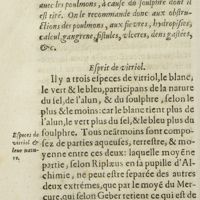 auec les poulmons, à cause du soulphre dont il
est tiré. On le recommande donc aux obstru-
ctions des poulmons, aux fievres, hydropisies,
calcul, gangrene, fistules, vlceres, dens gastées,
&c.
Esprit de vitriol.
Il y a trois especes de vitriol, le blanc,
le vert & le bleu, participans de la nature
du sel, de l'alun, & du soulphre, selon
le plus & le moins: car le blanc tient plus de
l'alun, le vert plus du sel, & le bleu plus du
soulphre. Tous neātmoins sont compo-
sez de parties aqueuses, terrestre, & mo-
yenne entre ces deux: laquelle moyenne
partie, selon Riplæus en la pupille d'Al-
chimie, ne peut estre separée des autres
deux extrémes, que par le moyē du Mer-
cure, qui selon Geber retient ce qui est de
Especes de
vitriol &
leur natu-
re.